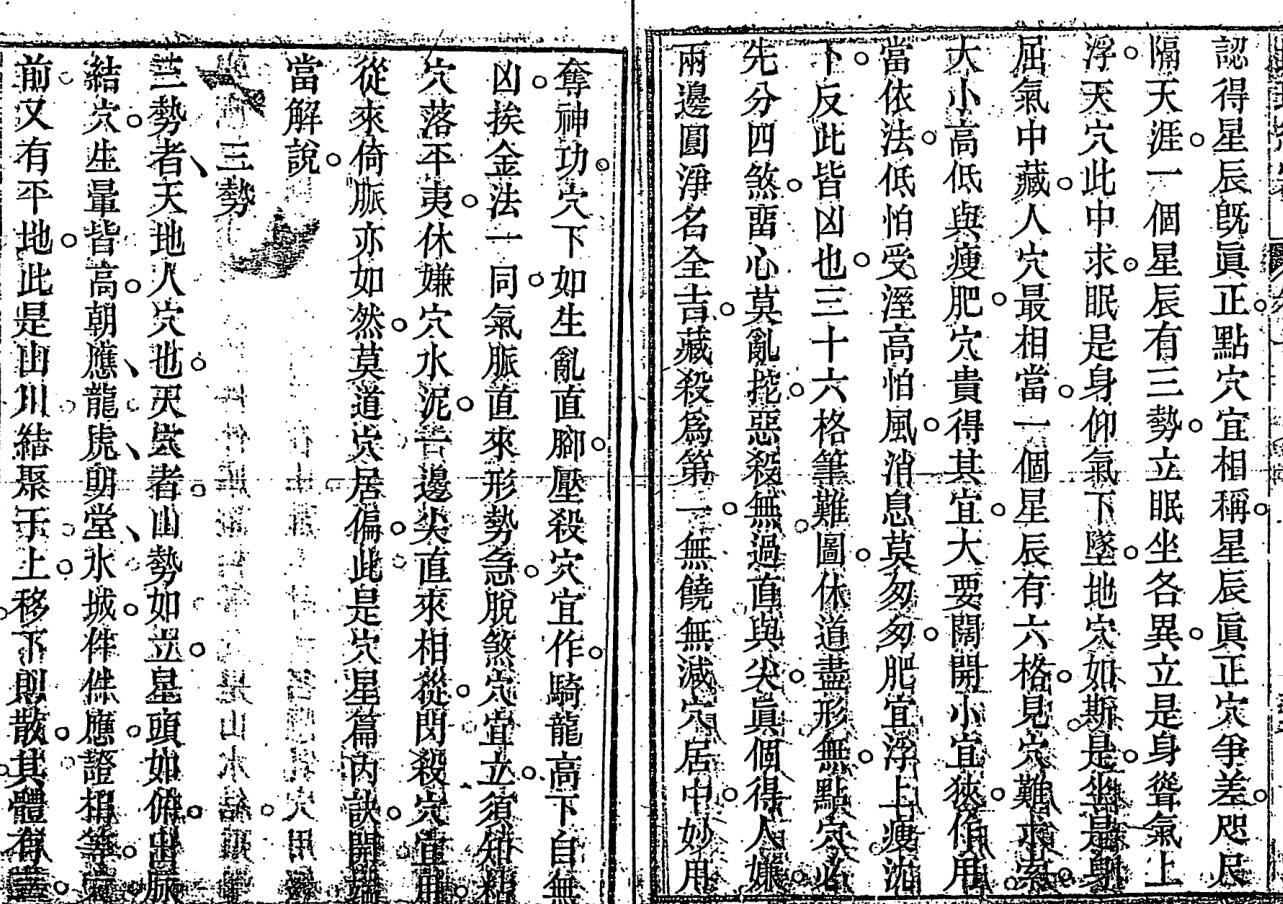 認得星辰旣眞正點穴宜相稱星辰眞正穴爭差咫尺
隔天涯一個星辰有三勢立眠坐各異立是身聳氣上
浮天穴此中求眠是身仰氣下墜地穴如斯是坐是身
屈氣中藏人穴最相當一個星辰有六格見穴難求索
大小高低與瘦肥穴貴得其宜大要闊開小宜狹作用
當依法低怕受溼高怕風消息莫匆匆肥宜浮上瘦沈
下反此皆凶也三十六格筆難圖休道盡形無點穴必
先分四煞畱心莫亂挖惡殺無過直與尖眞個得人嫌
兩邊圓淨名全吉藏殺爲第一無饒無減穴居中妙用
奪神功穴下如生亂直腳壓殺穴宜作騎龍高下自無
凶挨金法一同氣脈直來形勢急脫煞穴宜立須知粘
穴落平夷休嫌穴水泥一邊尖直來相從閃殺穴宜用
從來倚脈亦如然莫道穴居偏此是穴星篇內訣開端
當解說
三勢
三勢者天地人穴也天勢者山勢如立星頭如俯出脈
結穴生暈皆高朝應龍虎明堂水城件件應證相等
前又有平地此是山川結聚于上移下則散其體有